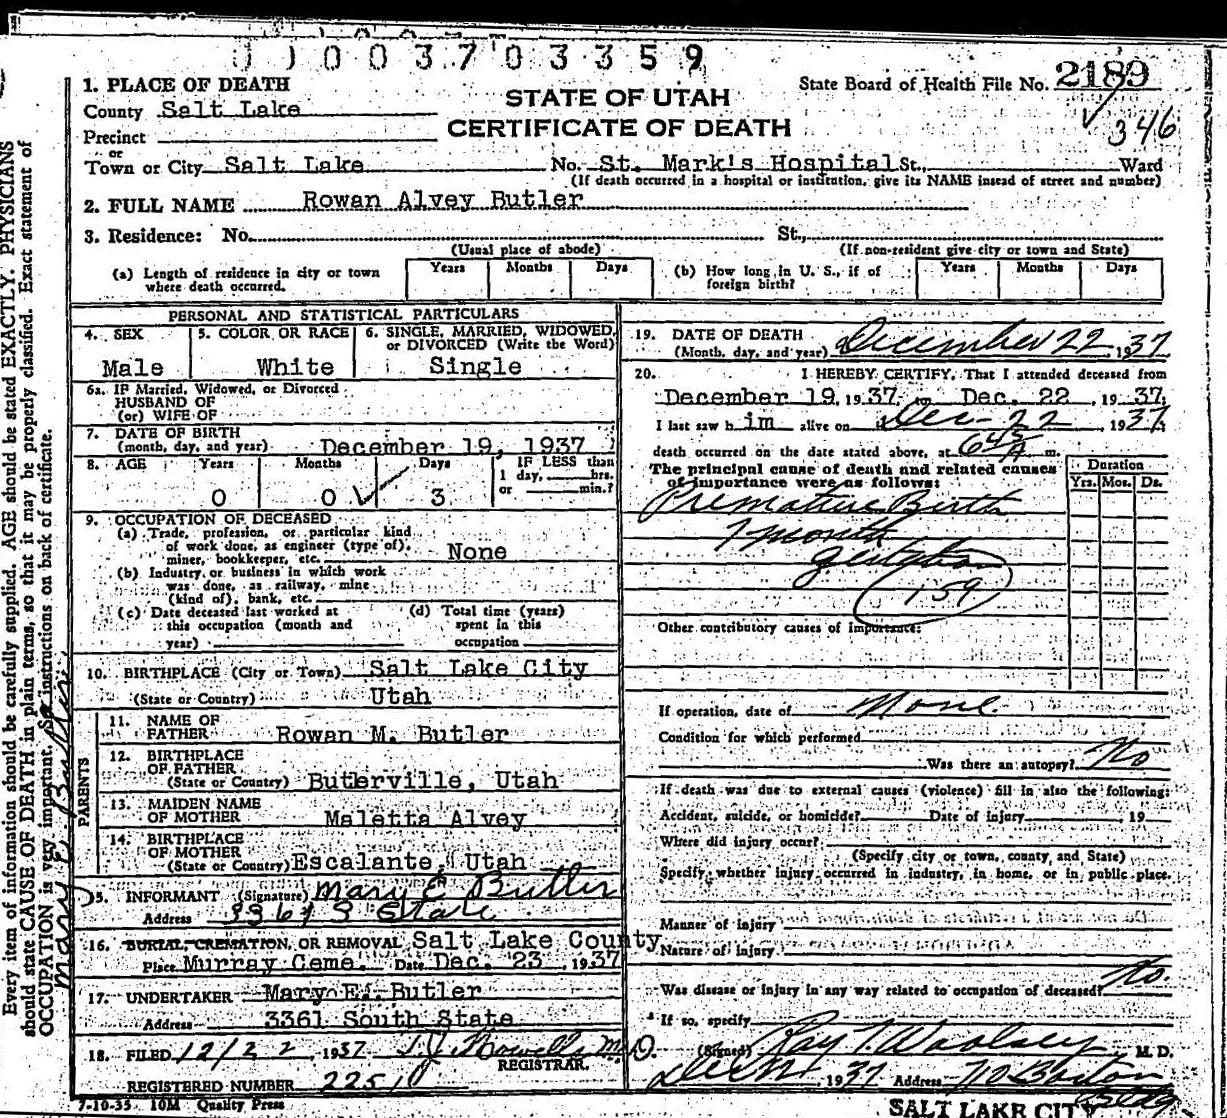 0 0 3 7 0 3 3 5 9
1. PLACE OF DEATH
County Salt Lake
Precinct
or
Town or City Salt Lake
STATE OF UTAH
CERTIFICATE OF DEATH
State Board of Health File No. 2189
346
No. St. Mark's Hospital St., Ward
(If death occurred in a hospital or institution, give its NAME instead of street and number)
2. FULL NAME Rowan Alvey Butler
3. Residence: No. St.,
(Usual place of abode) (If non-resident give city or town and State)
(a) Length of residence in city or town where death occurred. Years Months Days
(b) How long in U. S., if of foreign birth? Years Months Days
PERSONAL AND STATISTICAL PARTICULARS
4. SEX
Male
5. COLOR OR RACE
White
6. SINGLE, MARRIED, WIDOWED, or DIVORCED (Write the Word)
Single
6a. IF Married, Widowed, or Divorced
HUSBAND OF
(or) WIFE OF
7. DATE OF BIRTH
(month, day, and year) December 19, 1937
8. AGE Years Months Days
0 0 3
IF LESS than
1 day, hrs.
or min.?
9. OCCUPATION OF DECEASED
(a) Trade, profession, or particular kind
of work done, as engineer (type of),
miner, bookkeeper, etc. None
(b) Industry or business in which work
was done, as railway, mine
(kind of), bank, etc.
(c) Date deceased last worked at
this occupation (month and
year)
(d) Total time (years)
spent in this
occupation
10. BIRTHPLACE (City or Town) Salt Lake City
(State or Country) Utah
PARENTS
11. NAME OF
FATHER Rowan M. Butler
12. BIRTHPLACE
OF FATHER
(State or Country) Buterville, Utah
13. MAIDEN NAME
OF MOTHER Maletta Alvey
14. BIRTHPLACE
OF MOTHER
(State or Country) Escalante, Utah
15. INFORMANT (Signature) Mary E Butler
Address 3361 S State
16. BURIAL, CREMATION, OR REMOVAL Salt Lake County
Place Murray Ceme. Date Dec. 23, 1937
17. UNDERTAKER Mary E. Butler
Address 3361 South State
18. FILED 12/22 1937 M.D.
REGISTRAR.
REGISTERED NUMBER 2251
7-10-35 10M Quality Press
19. DATE OF DEATH
(Month, day, and year) December 22, 1937
20. I HEREBY CERTIFY, That I attended deceased from
December 19, 1937, to Dec. 22, 1937.
I last saw him alive on Dec-22, 1937,
death occurred on the date stated above, at 645 A m.
The principal cause of death and related causes
of importance were as follows:
Duration
Yrs. Mos. Ds.
Premature Birth
7 month
gestation
159
Other contributory causes of importance:
If operation, date of None
Condition for which performed
Was there an autopsy? No
If death was due to external causes (violence) fill in also the following:
Accident, suicide, or homicide? Date of injury , 19
Where did injury occur?
(Specify city or town, county, and State)
Specify whether injury occurred in industry, in home, or in public place.
Manner of injury
Nature of injury
Was disease or injury in any way related to occupation of deceased? No.
If so, specify
(Signed) Ray T. Woolsey, M. D.
1937 Address Boston Bldg
SALT LAKE CITY
Every item of information should be carefully supplied. AGE should be stated EXACTLY. PHYSICIANS
should state CAUSE OF DEATH in plain terms, so that it may be properly classified. Exact statement of
OCCUPATION is very important. See instructions on back of certificate.
Mary E. Butler